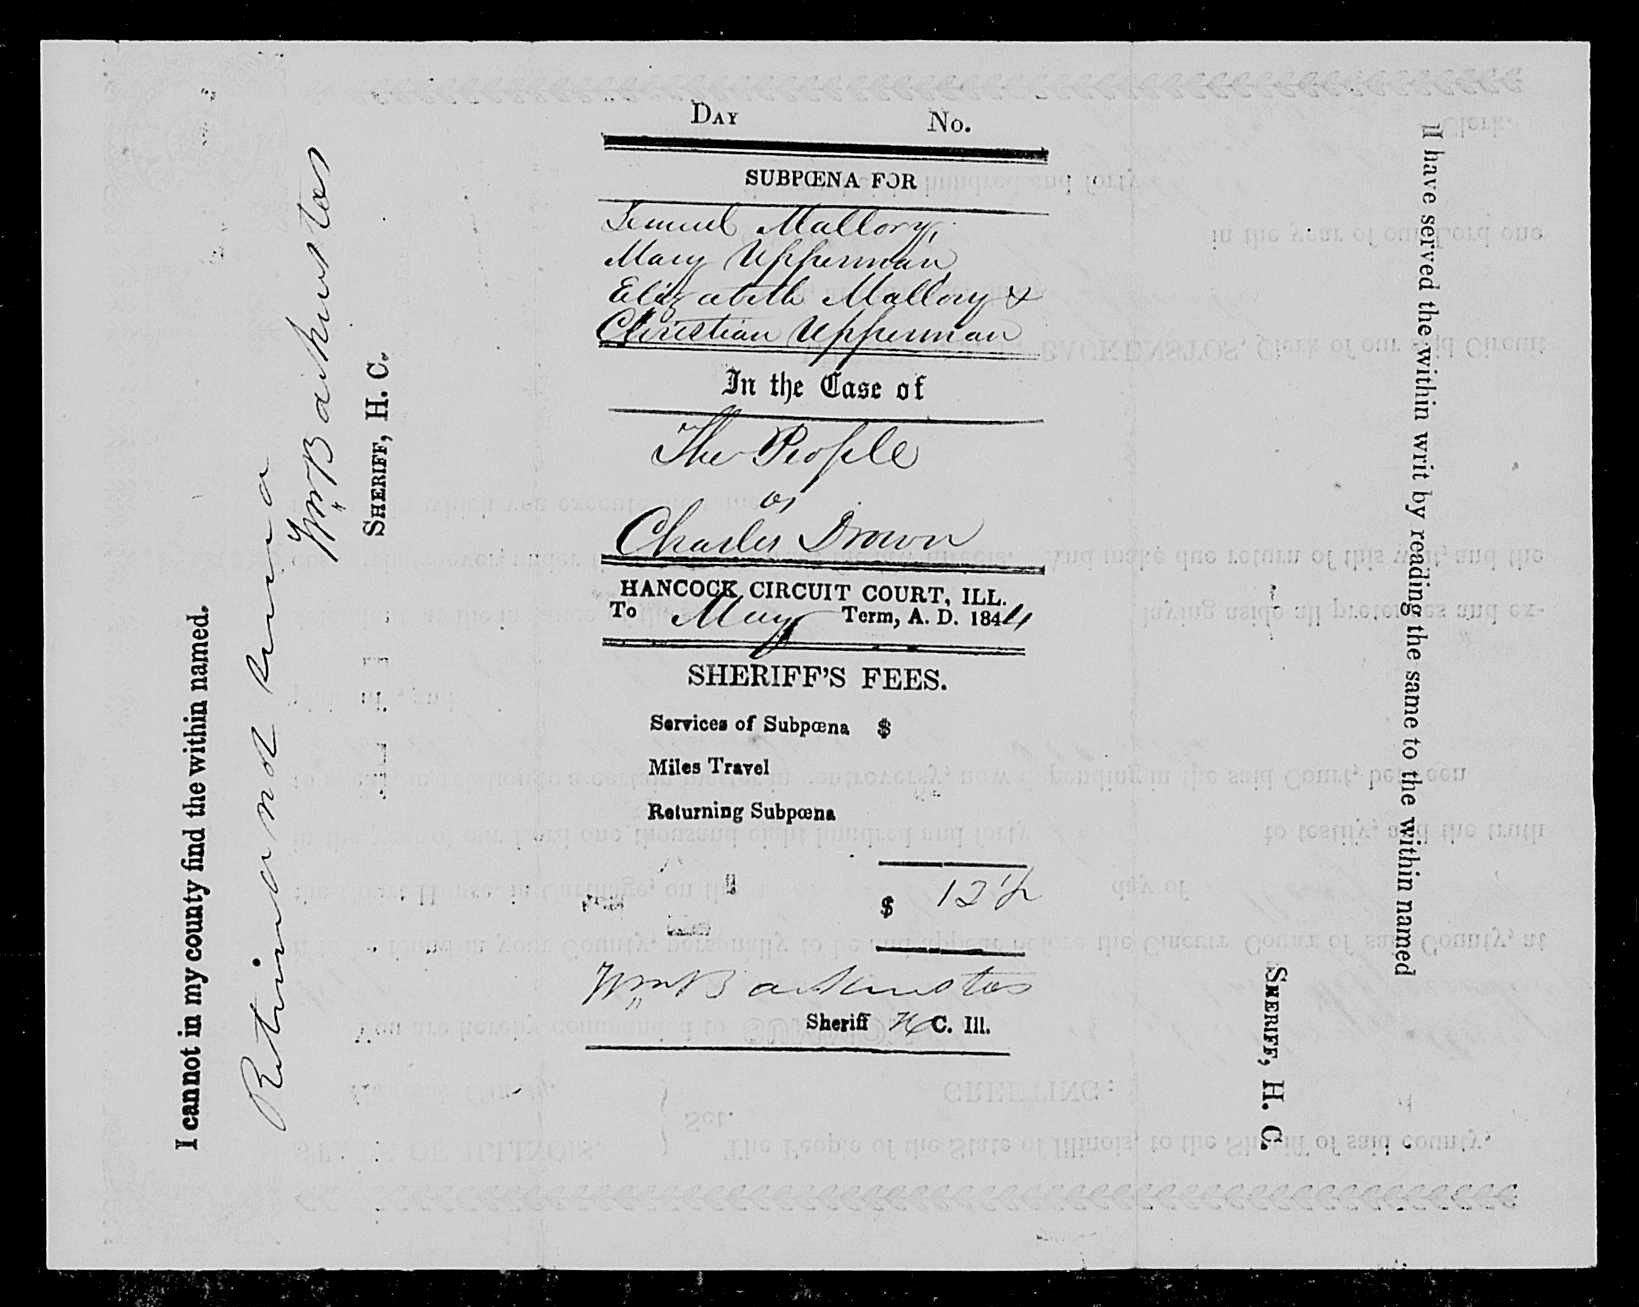 I cannot in my county find the within named.
Returned not found
Wm Backenstos
SHERIFF, H. C.
DAY No.
SUBPŒNA FOR
Lemuel Mallory,
Mary Upperman
Elizabeth Mallory &
Christian Upperman
In the Case of
The People
vs
Charles Drown
HANCOCK CIRCUIT COURT, ILL.
To May Term, A. D. 1844
SHERIFF'S FEES.
Services of Subpœna $
Miles Travel
Returning Subpœna
$ 12½
Wm Backenstos
Sheriff H C. Ill.
I have served the within writ by reading the same to the within named
SHERIFF, H. C.